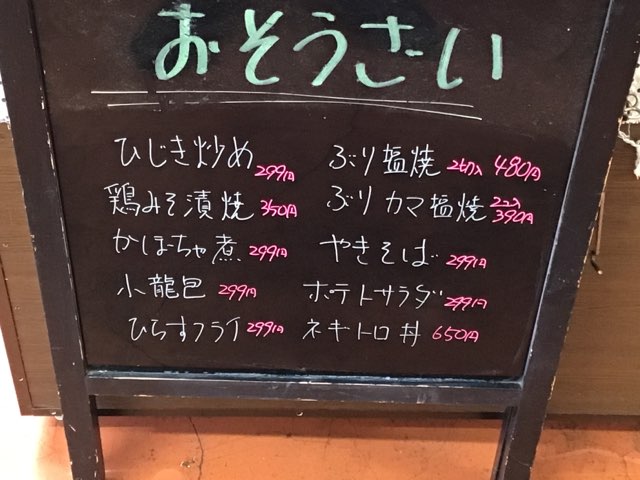 おそうざい
ひじき炒め 299円
鶏みそ漬焼 350円
かぼちゃ煮 299円
小龍包 299円
ひらすフライ 299円
ぶり塩焼 2切入 480円
ぶりカマ塩焼 2コ入 390円
やきそば 299円
ポテトサラダ 299円
ネギトロ丼 650円